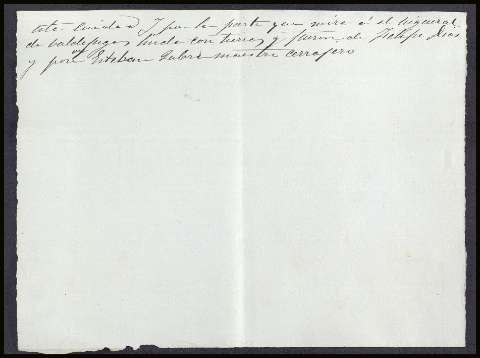 esta ciudad y por la parte que mira á el higueral
de valdefuegos linda con tierras q. fueron de Felipe Dias
y por Esteban Sabré maestro cerrajero